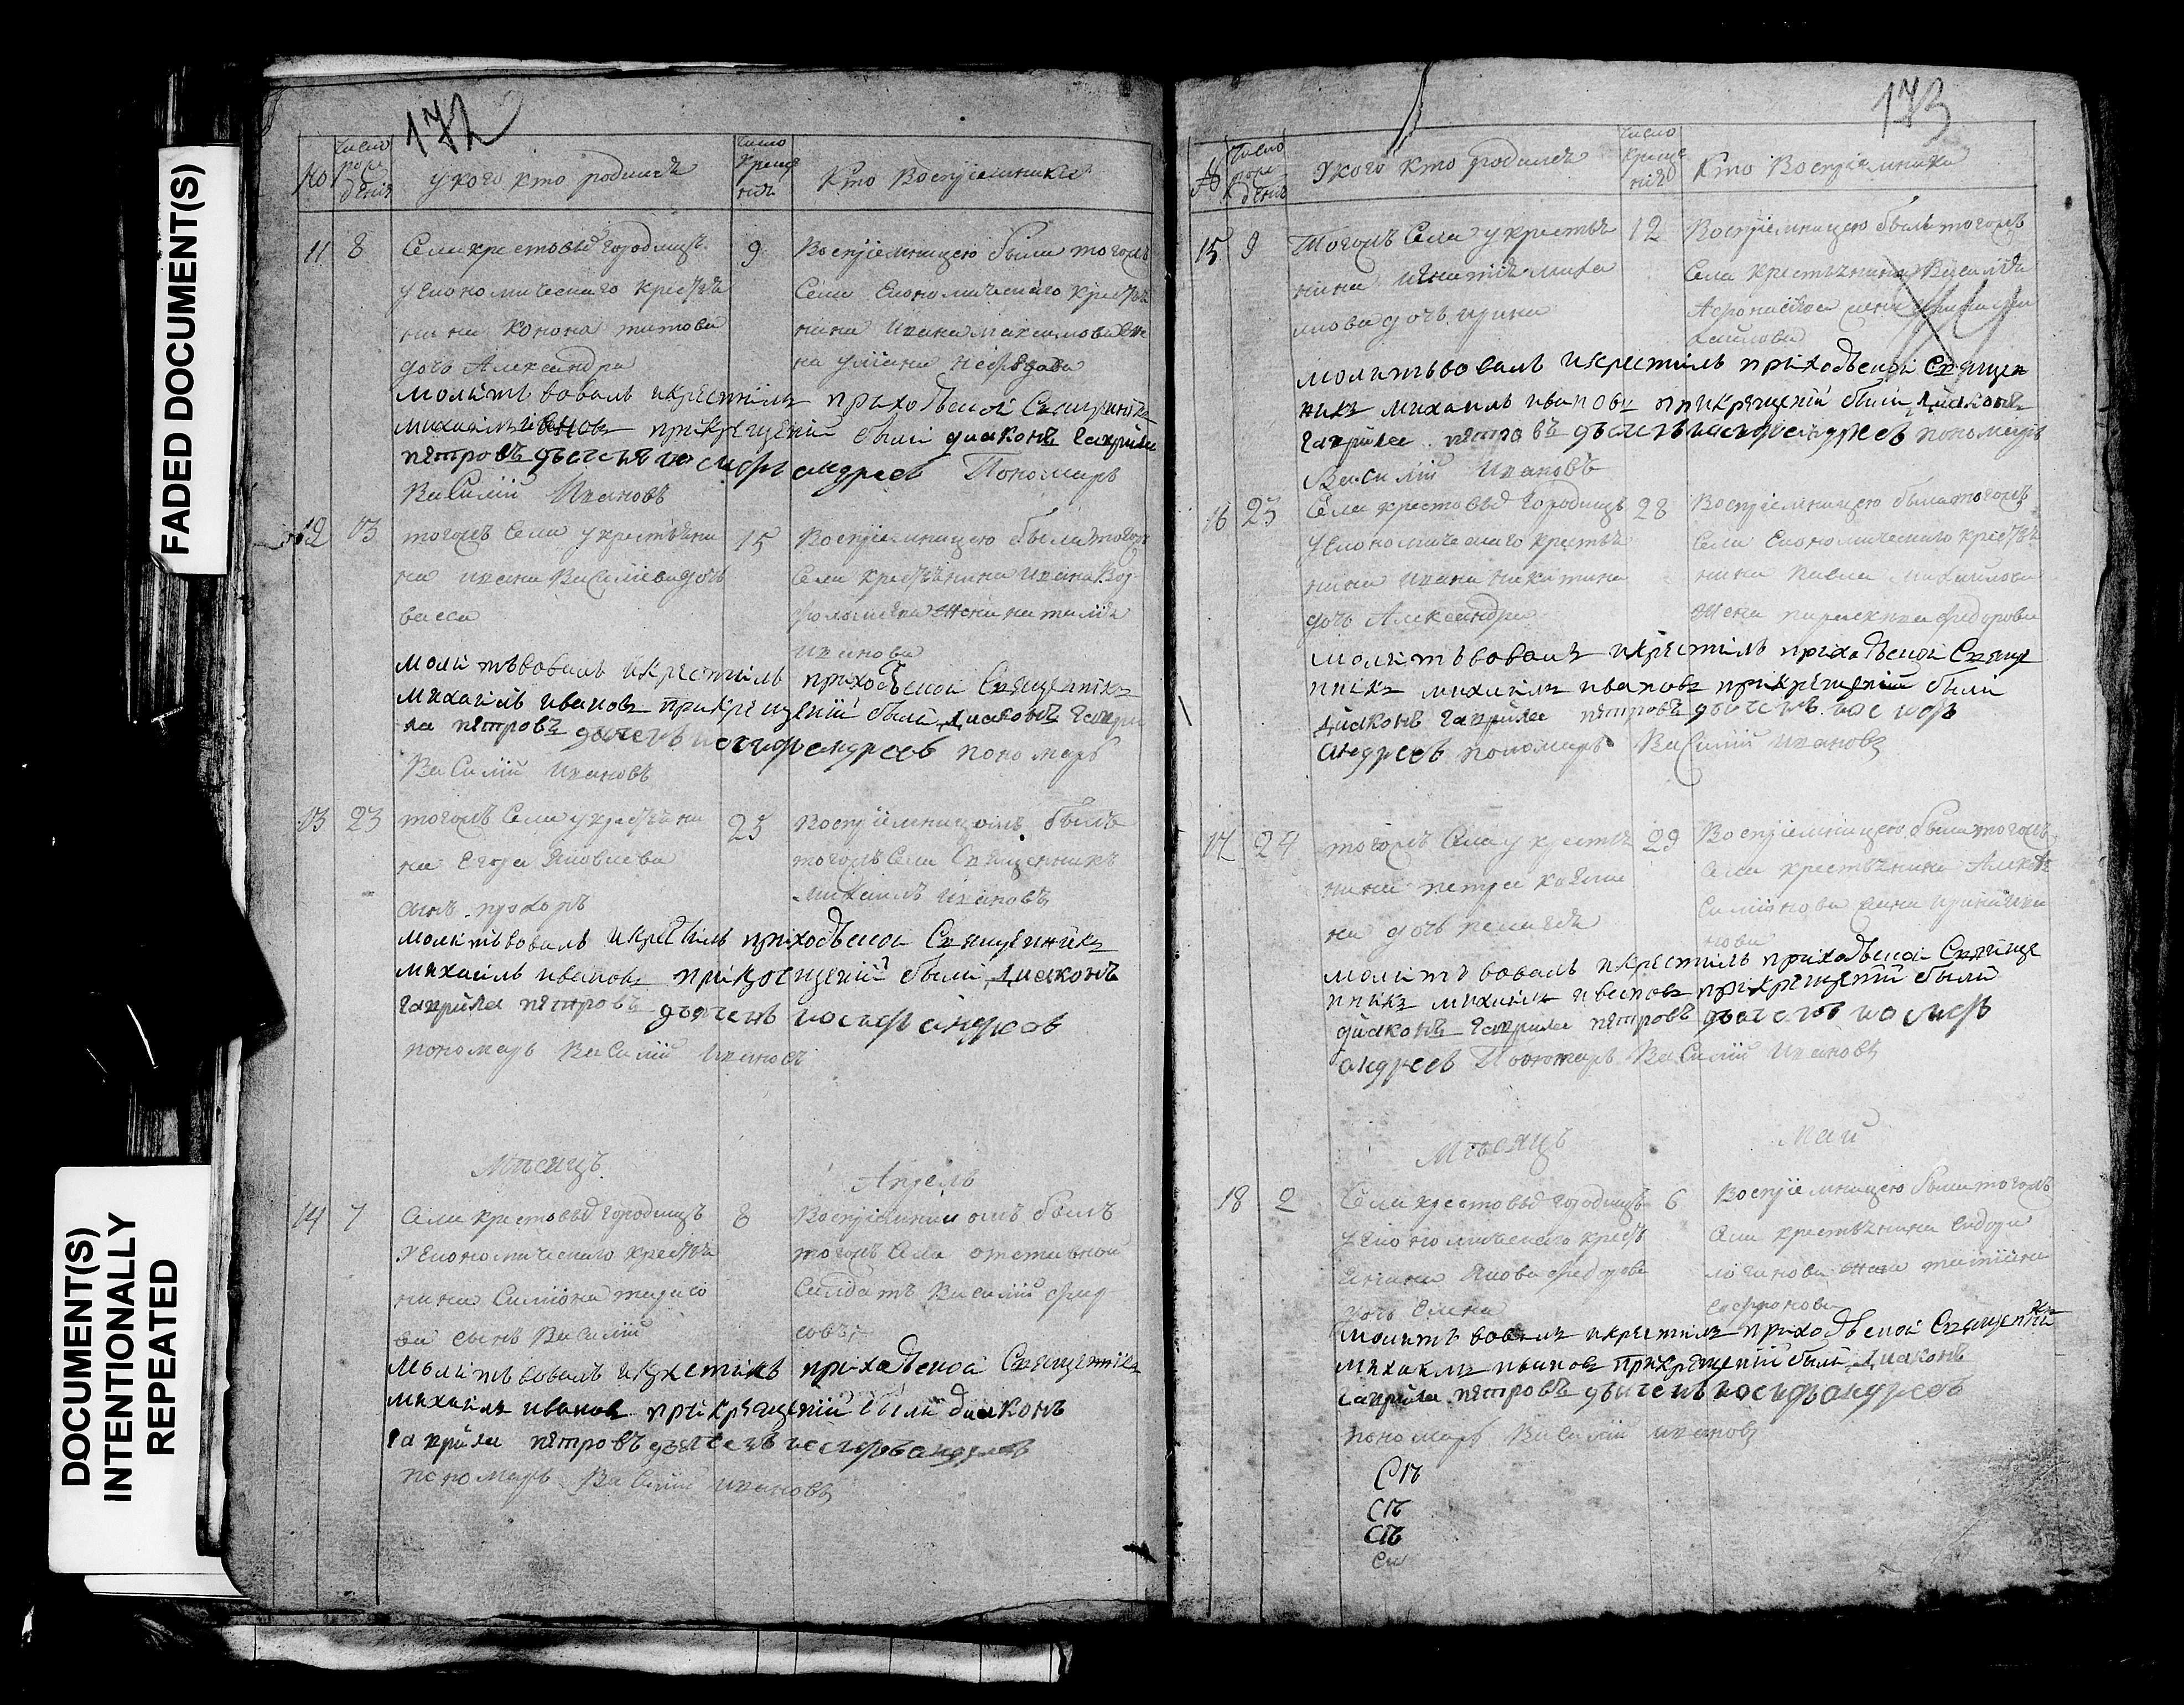 FADED DOCUMENT(S)
DOCUMENT(S)
INTENTIONALLY
REPEATED
172
№
число рожденія
у кого кто родился
число крещенія
Кто Воспріемники
11 8
Села крестовыхъ городищъ
у Економическаго крестья
нина Конона титова
дочь Александра
9
Воспріемницею была тогожъ
Села Економическаго крестья
нина Ивана максимова же
на ульяна
молитвовалъ икрестилъ приходской Священникъ
михаилъ ивановъ прикрещеніи были диаконъ гаврила
петровъ дьячекъ иосифъ андреев Пономарь
Василій Ивановъ
12 13
тогожъ Села укрестьяни
на ивана Василиева дочь
васса
15
Воспріемницею была тогожъ
Села крестьянина ивана
жена наталья
иванова
молитвовалъ икрестилъ приходской Священникъ
михаилъ ивановъ прикрещеніи были диаконъ гаври
ла петровъ дьячекъ иосифъ андреев пономарь
Василій ивановъ
13 23
тогожъ Села укрестьяни
на Егора Яковлева
сынъ прохоръ
25
Воспріемникомъ былъ
тогожъ Села Священникъ
михаилъ ивановъ
молитвовалъ икрестилъ приходской Священникъ
михаилъ ивановъ прикрещеніи были диаконъ
гаврила петровъ дьячекъ иосифъ андреов
пономарь Василій ивановъ
Месяцъ Апрель
14 7
Села крестовыхъ городищъ
у Економическаго крестья
нина Симиона
ва сынъ Василій
8
Воспріемникомъ былъ
тогожъ Села отставной
Салдатъ Василій
молитвовалъ икрестилъ приходской Священникъ
михаилъ ивановъ прикрещеніи были диаконъ
гаврила петровъ дьячекъ иосифъ андреев
пономарь Василій ивановъ
173
№
число рожденія
У кого кто родился
число крещенія
Кто Воспріемники
15 9
Тогожъ Села укрестья
нина игнатия миха
илова дочь ирина
12
Воспріемницею была тогожъ
Села крестьянина Василия
хаилова
молитвовалъ икрестилъ приходской Священ
никъ михаилъ ивановъ прикрещеніи были диаконъ
гаврила петровъ дьячекъ иосифъ андреевъ пономарь
Василій Ивановъ
16 25
Села крестовыхъ городищъ
у Економическаго крестья
нина Ивана никитина
дочь Александра
28
Воспріемницею была тогожъ
Села Економическаго крестья
нина павла михаилова
жена параскева федорова
молитвовалъ икрестилъ приходской Свяще
нникъ михаилъ ивановъ прикрещеніи были
диаконъ гаврила петровъ дьячекъ иосифъ
андреев пономарь Василій ивановъ
17 24
тогожъ Села у крестья
нина петра козми
на дочь пелагия
29
Воспріемницею была тогожъ
Села крестьянина
Симионова жена ирина ива
нова
молитвовалъ икрестилъ приходской Свяще
нникъ михаилъ ивановъ прикрещеніи были
диаконъ гаврила петровъ дьячекъ иосифъ
андреев Пономарь Василій Ивановъ
Месяцъ Маій
18 2
Села крестовыхъ городищъ
у Економическаго кресть
янина Якова федорова
дочь Елена
6
Воспріемницею была тогожъ
Села крестьянина сидора
логинова жена татиана
софронова
молитвовалъ икрестилъ приходской Священникъ
михаилъ ивановъ прикрещеніи были диаконъ
гаврила петровъ дьячекъ иосифъ андреов
пономарь Василій ивановъ